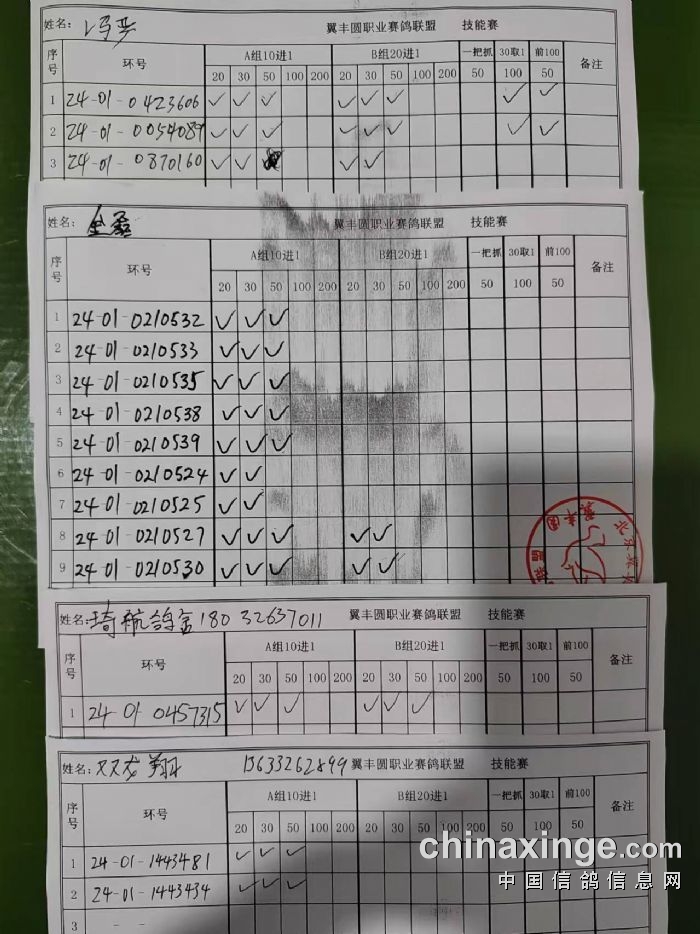 姓名: 冯兴 翼丰圆职业赛鸽联盟 技能赛
序号 环号 A组10进1 B组20进1 一把抓 30取1 前100 备注
20 30 50 100 200 20 30 50 100 200 50 100 50
1 24-01-0423606 ✓ ✓ ✓ ✓ ✓ ✓ ✓ ✓
2 24-01-0054089 ✓ ✓ ✓ ✓ ✓ ✓ ✓ ✓
3 24-01-0870160 ✓ ✓ ✓ ✓
姓名: 金磊 翼丰圆职业赛鸽联盟 技能赛
序号 环号 A组10进1 B组20进1 一把抓 30取1 前100 备注
20 30 50 100 200 20 30 50 100 200 50 100 50
1 24-01-0210532 ✓ ✓ ✓
2 24-01-0210533 ✓ ✓ ✓
3 24-01-0210535 ✓ ✓ ✓
4 24-01-0210538 ✓ ✓ ✓
5 24-01-0210539 ✓ ✓ ✓
6 24-01-0210524 ✓ ✓
7 24-01-0210525 ✓ ✓
8 24-01-0210527 ✓ ✓ ✓ ✓ ✓
9 24-01-0210530 ✓ ✓ ✓ ✓ ✓
姓名: 琦航鸽舍 18032637011 翼丰圆职业赛鸽联盟 技能赛
序号 环号 A组10进1 B组20进1 一把抓 30取1 前100 备注
20 30 50 100 200 20 30 50 100 200 50 100 50
1 24-01-0457315 ✓ ✓ ✓ ✓ ✓ ✓
姓名: 双龙翔 13633262899 翼丰圆职业赛鸽联盟 技能赛
序号 环号 A组10进1 B组20进1 一把抓 30取1 前100 备注
20 30 50 100 200 20 30 50 100 200 50 100 50
1 24-01-1443481 ✓ ✓ ✓
2 24-01-1443434 ✓ ✓ ✓
3 - -
chinaxinge.com
中国信鸽信息网